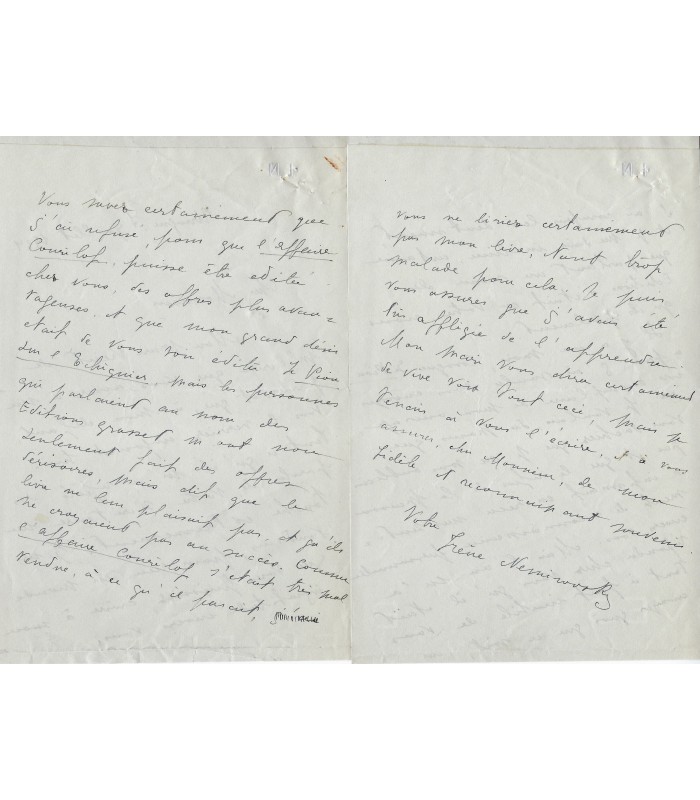 Vous savez certainement que
j'ai refusé, pour que l'affaire
Courilof, puisse être éditée
chez vous, des offres plus avan=
tageuses, et que mon grand désir
était de vous voir éditer Le Pion
sur l'Echiquier, Mais les personnes
qui parlaient au nom des
Editions Grasset m'ont non
seulement fait des offres
dérisoires, mais dit que le
livre ne leur plaisait pas, et qu'ils
ne croyaient pas au succès. Comme
l'affaire Courilof s'était très mal
vendue, à ce qu'il parait,
vous ne liriez certainement
pas mon livre, étant trop
malade pour cela. Je puis
vous assurer que j'avais été
très affligée de l'apprendre.
Mon mari vous dira certainement
de vive voix tout ceci, mais je
tenais à vous l'écrire, et à vous
assurer, cher Monsieur, de mon
fidèle et reconnaissant souvenir.
Votre
Irène Nemirovsky